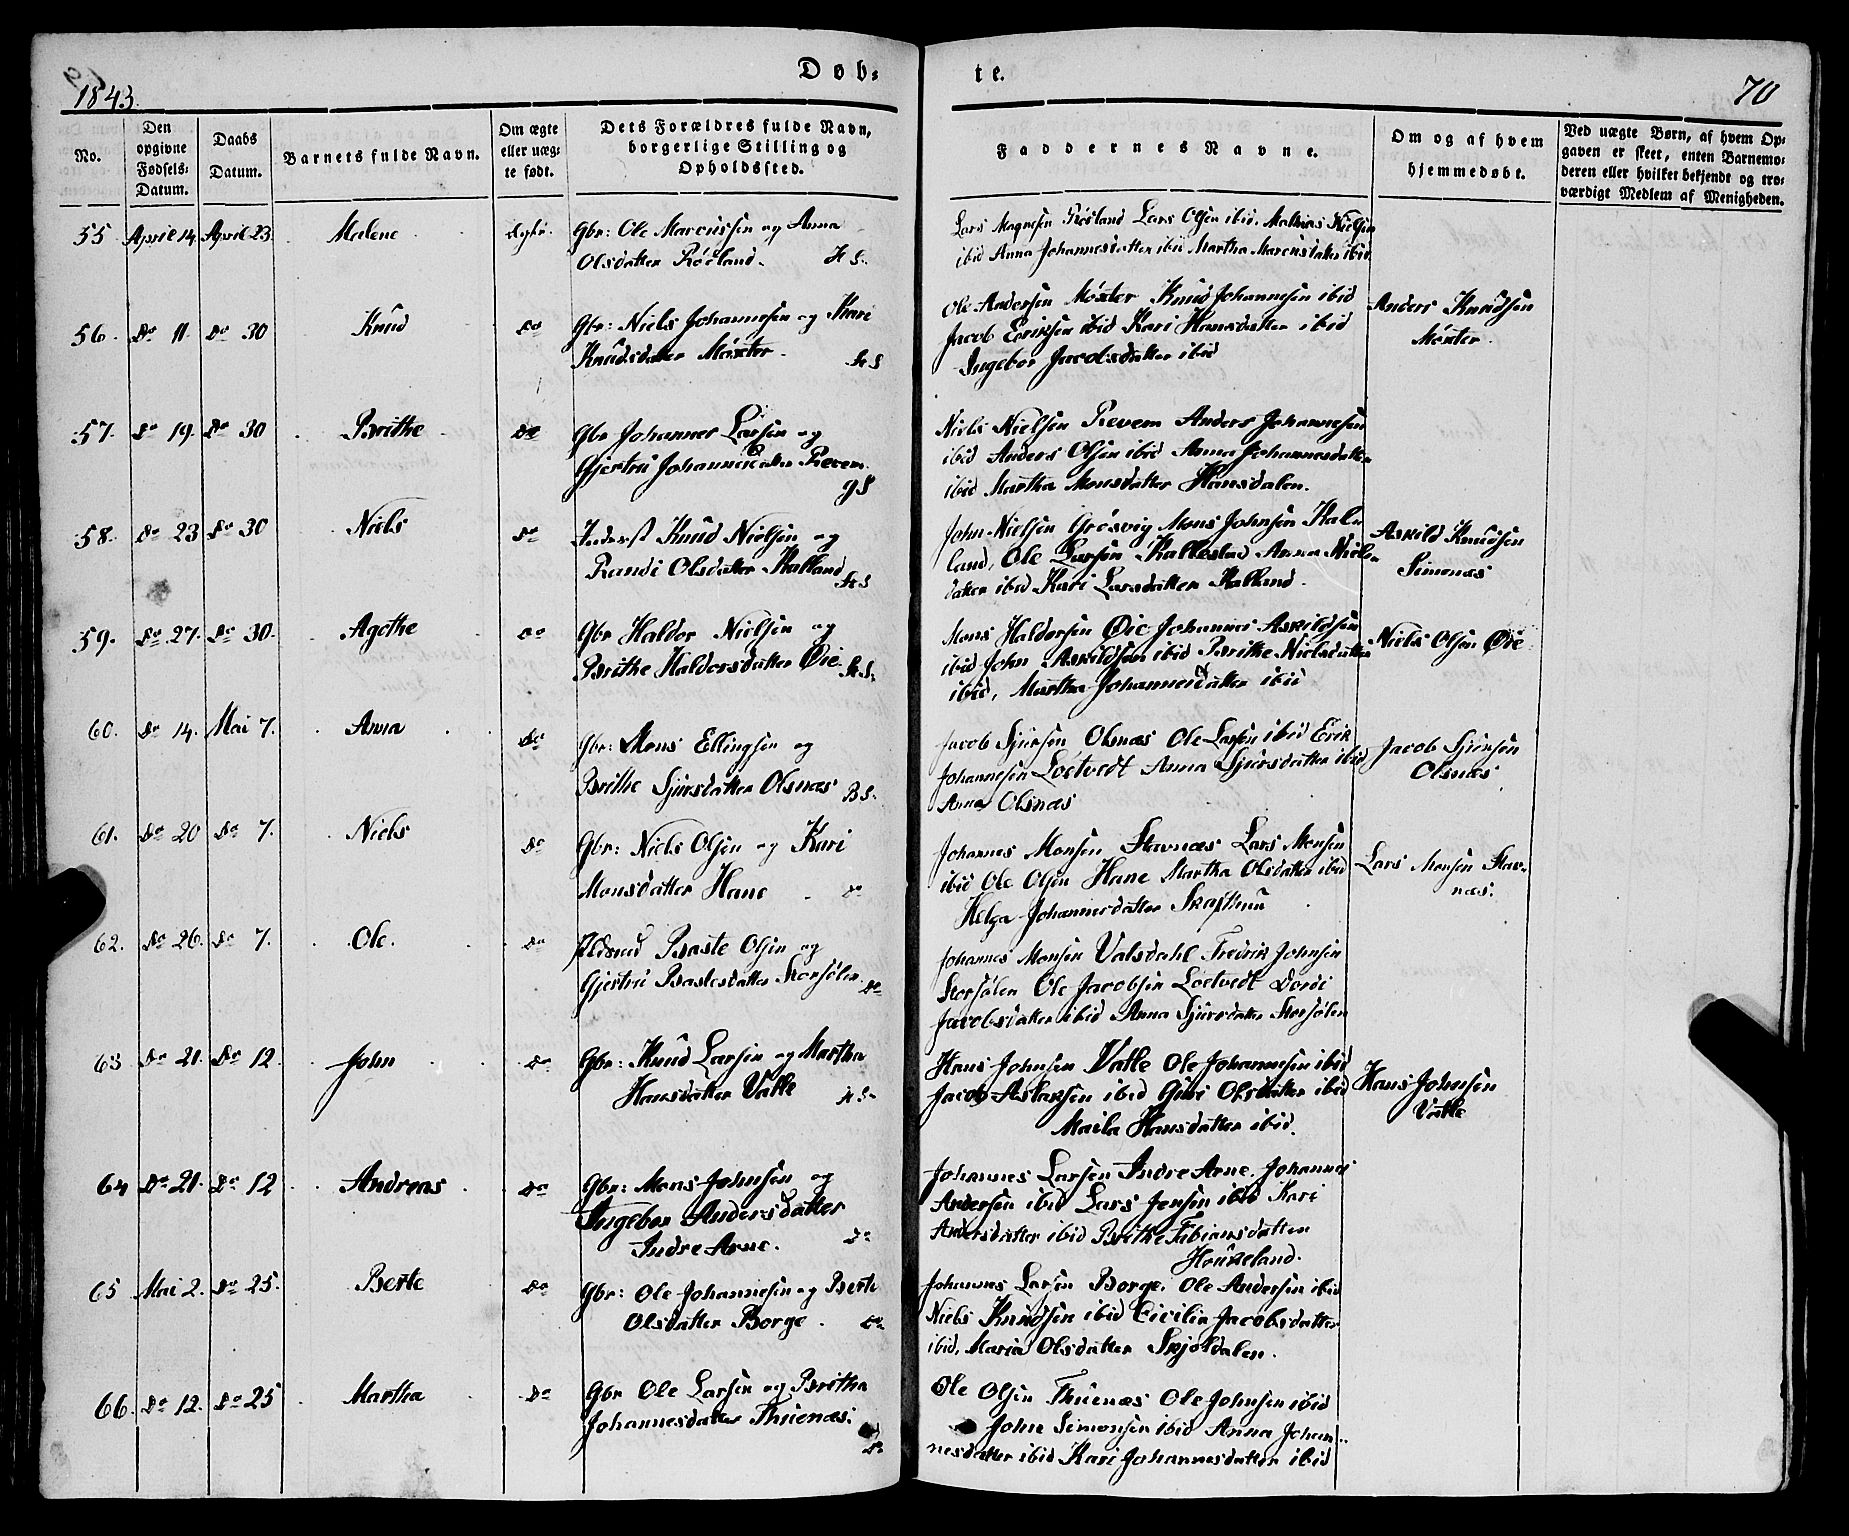 1843.
Døb-
te.
70
No.
Den opgivne Fødsels-Datum.
Daabs Datum.
Barnets fulde Navn.
Om ægte eller uæg-te født.
Dets Forældres fulde Navn, borgerlige Stilling og Opholdssted.
Faddernes Navne.
Om og af hvem hjemmedøbt.
Ved uægte Børn, af hvem Op-
gaven er skeet, enten Barnemo-
deren eller hvilket bekjendt og tro-
værdigt Medlem af Menigheden.
55 April 14. April 23. Malene
Gbr: Ole Marcussen og Anna
Olsdatter Røeland.
Lars Magnesen Røsland Lars Olsen ibid. Mathias Nielsen
ibid Anna Johannesdatter ibid Martha Marcusdatter ibid
56. Do 11. Do 30 Knud Do
Gbr: Niels Johannesen og Kari
Knudsdatter Møxter.
Ole Andersen Møxter Knud Johannesen ibid
Jacob Eriksen ibid Kari Hansdatter ibid
Ingebor Jacobsdatter ibid
Anders Knudsen
Møxter.
57. Do 19. Do 30 Brithe Do
Gbr Johannes Larsen og
Gjertru Johannesdatter Revem.
Niels Nielsen Revem Anders Johannesen
ibid Anders Olsen ibid Anna Johannesdatter
ibid Martha Monsdatter Hansdalen.
58. Do 23 Do 30 Niels Do
Inderst Knud Nielsen og
Randi Olsdatter Kalland
John Nielsen Grøsvig Mons Johnsen Kal-
land, Ole Larsen Kallestad Anna Niels-
datter ibid Kari Larsdatter Kalland.
Askild Knudsen
Simonæs
59. Do 27. Do 30. Agothe Do
Gbr Haldor Nielsen og
Brithe Haldorsdatter Øie
Mons Haldorsen Øie Johannes Askildsen
ibid John Askildsen ibid Brithe Nielsdatter
ibid, Martha Johannesdatter ibid
Niels Olsen Øie
60. Do 14. Mai 7. Anna Do
Gbr: Mons Ellingsen og
Brithe Sjursdatter Olsnæs
Jacob Sjursen Olsnæs Ole Larsen ibid Erik
Johannesen Loetvedt Anna Sjursdatter ibid
Anna Olsnæs
Jacob Sjursen
Olsnæs
61. Do 20 Do 7. Niels Do
Gbr: Niels Olsen og Kari
Monsdatter Hane Do
Johannes Monsen Stavnæs Lars Monsen
ibid Ole Olsen Hane Martha Olsdatter ibid
Helga Johannesdatter
Lars Monsen Stav-
næs.
62. Do 26. Do 7. Ole. Do
Baste Olsen og
Gjertru Bastesdatter Storsølen. Do
Johannes Monsen Valsdahl Fredrik Johnsen
Storsølen Ole Jacobsen Loetvedt Dordi
Jacobsdatter ibid Anna Sjursdatter Storsølen
63 Do 21. Do 12. John Do
Gbr: Knud Larsen og Martha
Hansdatter Vatle
Hans Johnsen Vatle Ole Johannesen ibid
Jacob Aslaksen ibid Guri Olsdatter ibid
Maila Hansdatter ibid.
Hans Johnsen
Vatle
64 Do 21. Do 12 Andreas Do
Gbr: Mons Johnsen og
Ingebor Andersdatter
Indre Arne. Do
Johannes Larsen Indre Arne. Johannes
Andersen ibid Lars Jensen ibid Kari
Andersdatter ibid Brithe Fabiansdatter
Houkeland.
65 Mai 2. Do 25. Berte Do
Gbr: Ole Johannesen og Berte
Olsdatter Borge. Do
Johannes Larsen Borge. Ole Andersen ibid
Niels Knudsen ibid Cicilia Jacobsdatter
ibid, Maria Olsdatter Skjoldalen.
66. Do 12. Do 25 Martha Do
Gbr Ole Larsen og Britha
Johannesdatter Thuenæs. Do
Ole Olsen Thuenæs Ole Johnsen ibid
John Simonsen ibid Anna Johan-
nesdatter ibid Kari Johannesdatter ibid